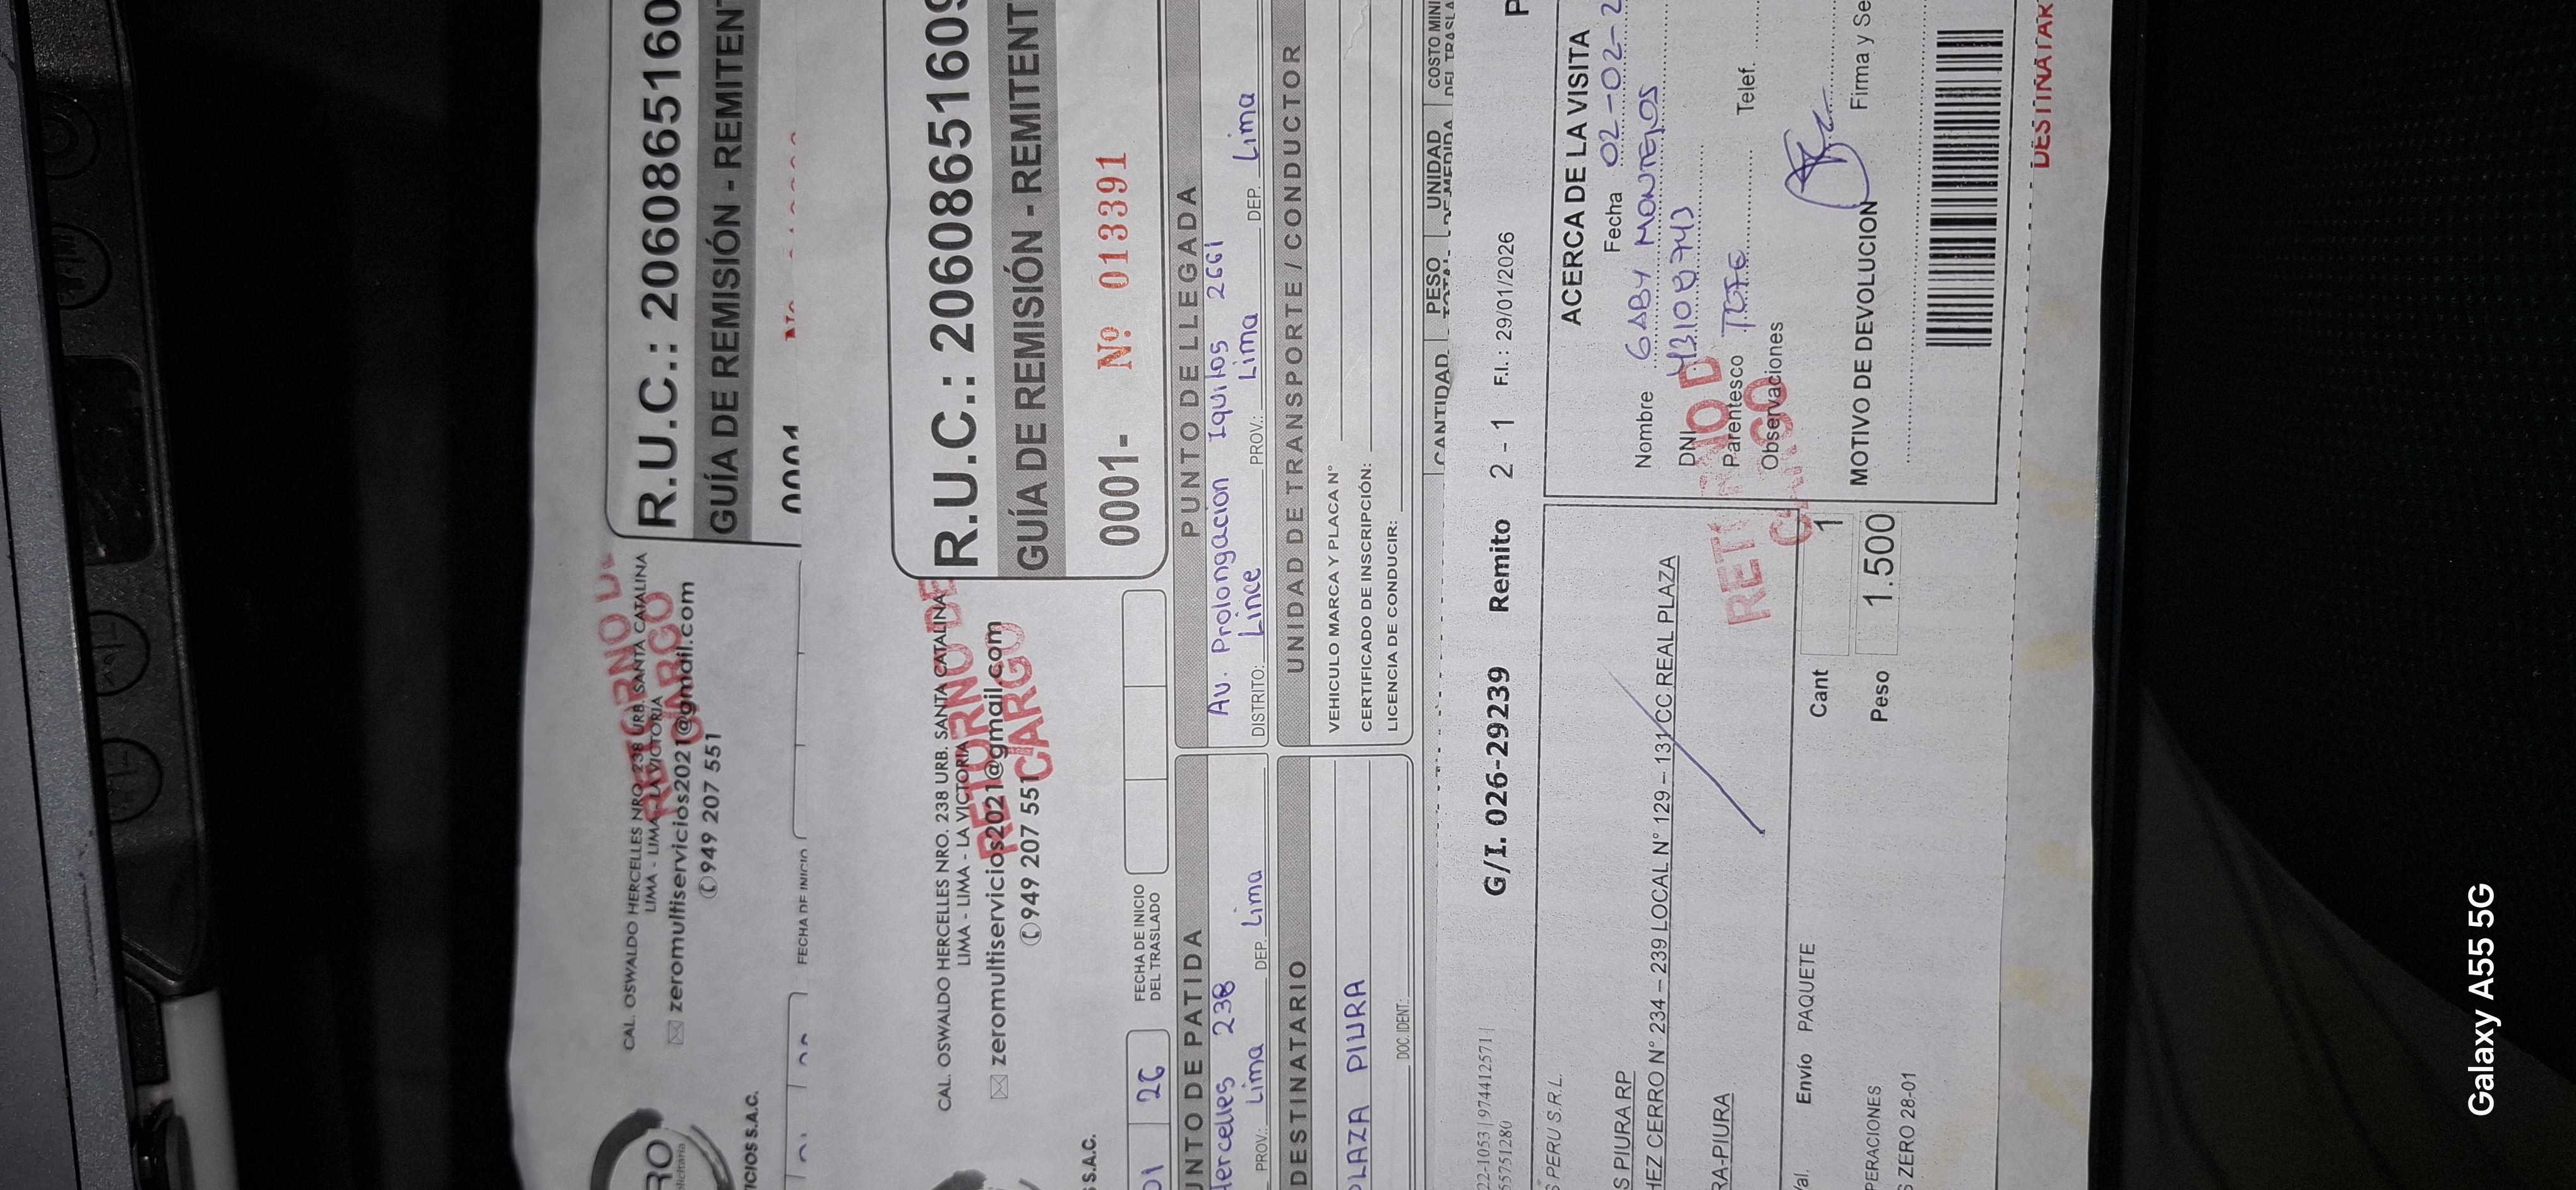 R.U.C.: 2060865160
GUÍA DE REMISIÓN - REMITEN
CAL. OSWALDO HERCELLES NRO. 238 URB. SANTA CATALINA
LIMA - LIMA - LA VICTORIA
zeromultiservicios2021@gmail.com
949 207 551
RETORNO DE
CARGO
0001
Nº
FECHA DE INICIO
RO
CIOS S.A.C.
R.U.C.: 2060865160
GUÍA DE REMISIÓN - REMITENT
0001- Nº 013391
CAL. OSWALDO HERCELLES NRO. 238 URB. SANTA CATALINA
LIMA - LIMA - LA VICTORIA
zeromultiservicios2021@gmail.com
949 207 551
RETORNO DE
CARGO
S.A.C.
01 26
FECHA DE INICIO
DEL TRASLADO
UNTO DE PATIDA
Hercelles 238
PROV.: Lima DEP. Lima
PUNTO DE LLEGADA
Av. Prolongacion Iquitos 2661
DISTRITO: Lince PROV.: Lima DEP. Lima
DESTINATARIO
PLAZA PIURA
DOC. IDENT.:
UNIDAD DE TRANSPORTE / CONDUCTOR
VEHICULO MARCA Y PLACA N°
CERTIFICADO DE INSCRIPCIÓN:
LICENCIA DE CONDUCIR:
CANTIDAD PESO TOTAL UNIDAD DE MEDIDA COSTO MINI DEL TRASLA
22-1053 | 974412571 |
55751280
G/I. 026-29239 Remito 2 - 1 F.I. : 29/01/2026 P
S PERU S.R.L.
S PIURA RP
HEZ CERRO N° 234 – 239 LOCAL N° 129 – 131 CC REAL PLAZA
RA-PIURA
Val. Envío PAQUETE Cant 1
PERACIONES Peso 1.500
S ZERO 28-01
ACERCA DE LA VISITA
Fecha 02-02-2
Nombre GABY MONTEJOS
DNI
Parentesco
Telef.
Observaciones
RETORNO D
CARGO
MOTIVO DE DEVOLUCION
Firma y Se
DESTINATAR
Galaxy A55 5G